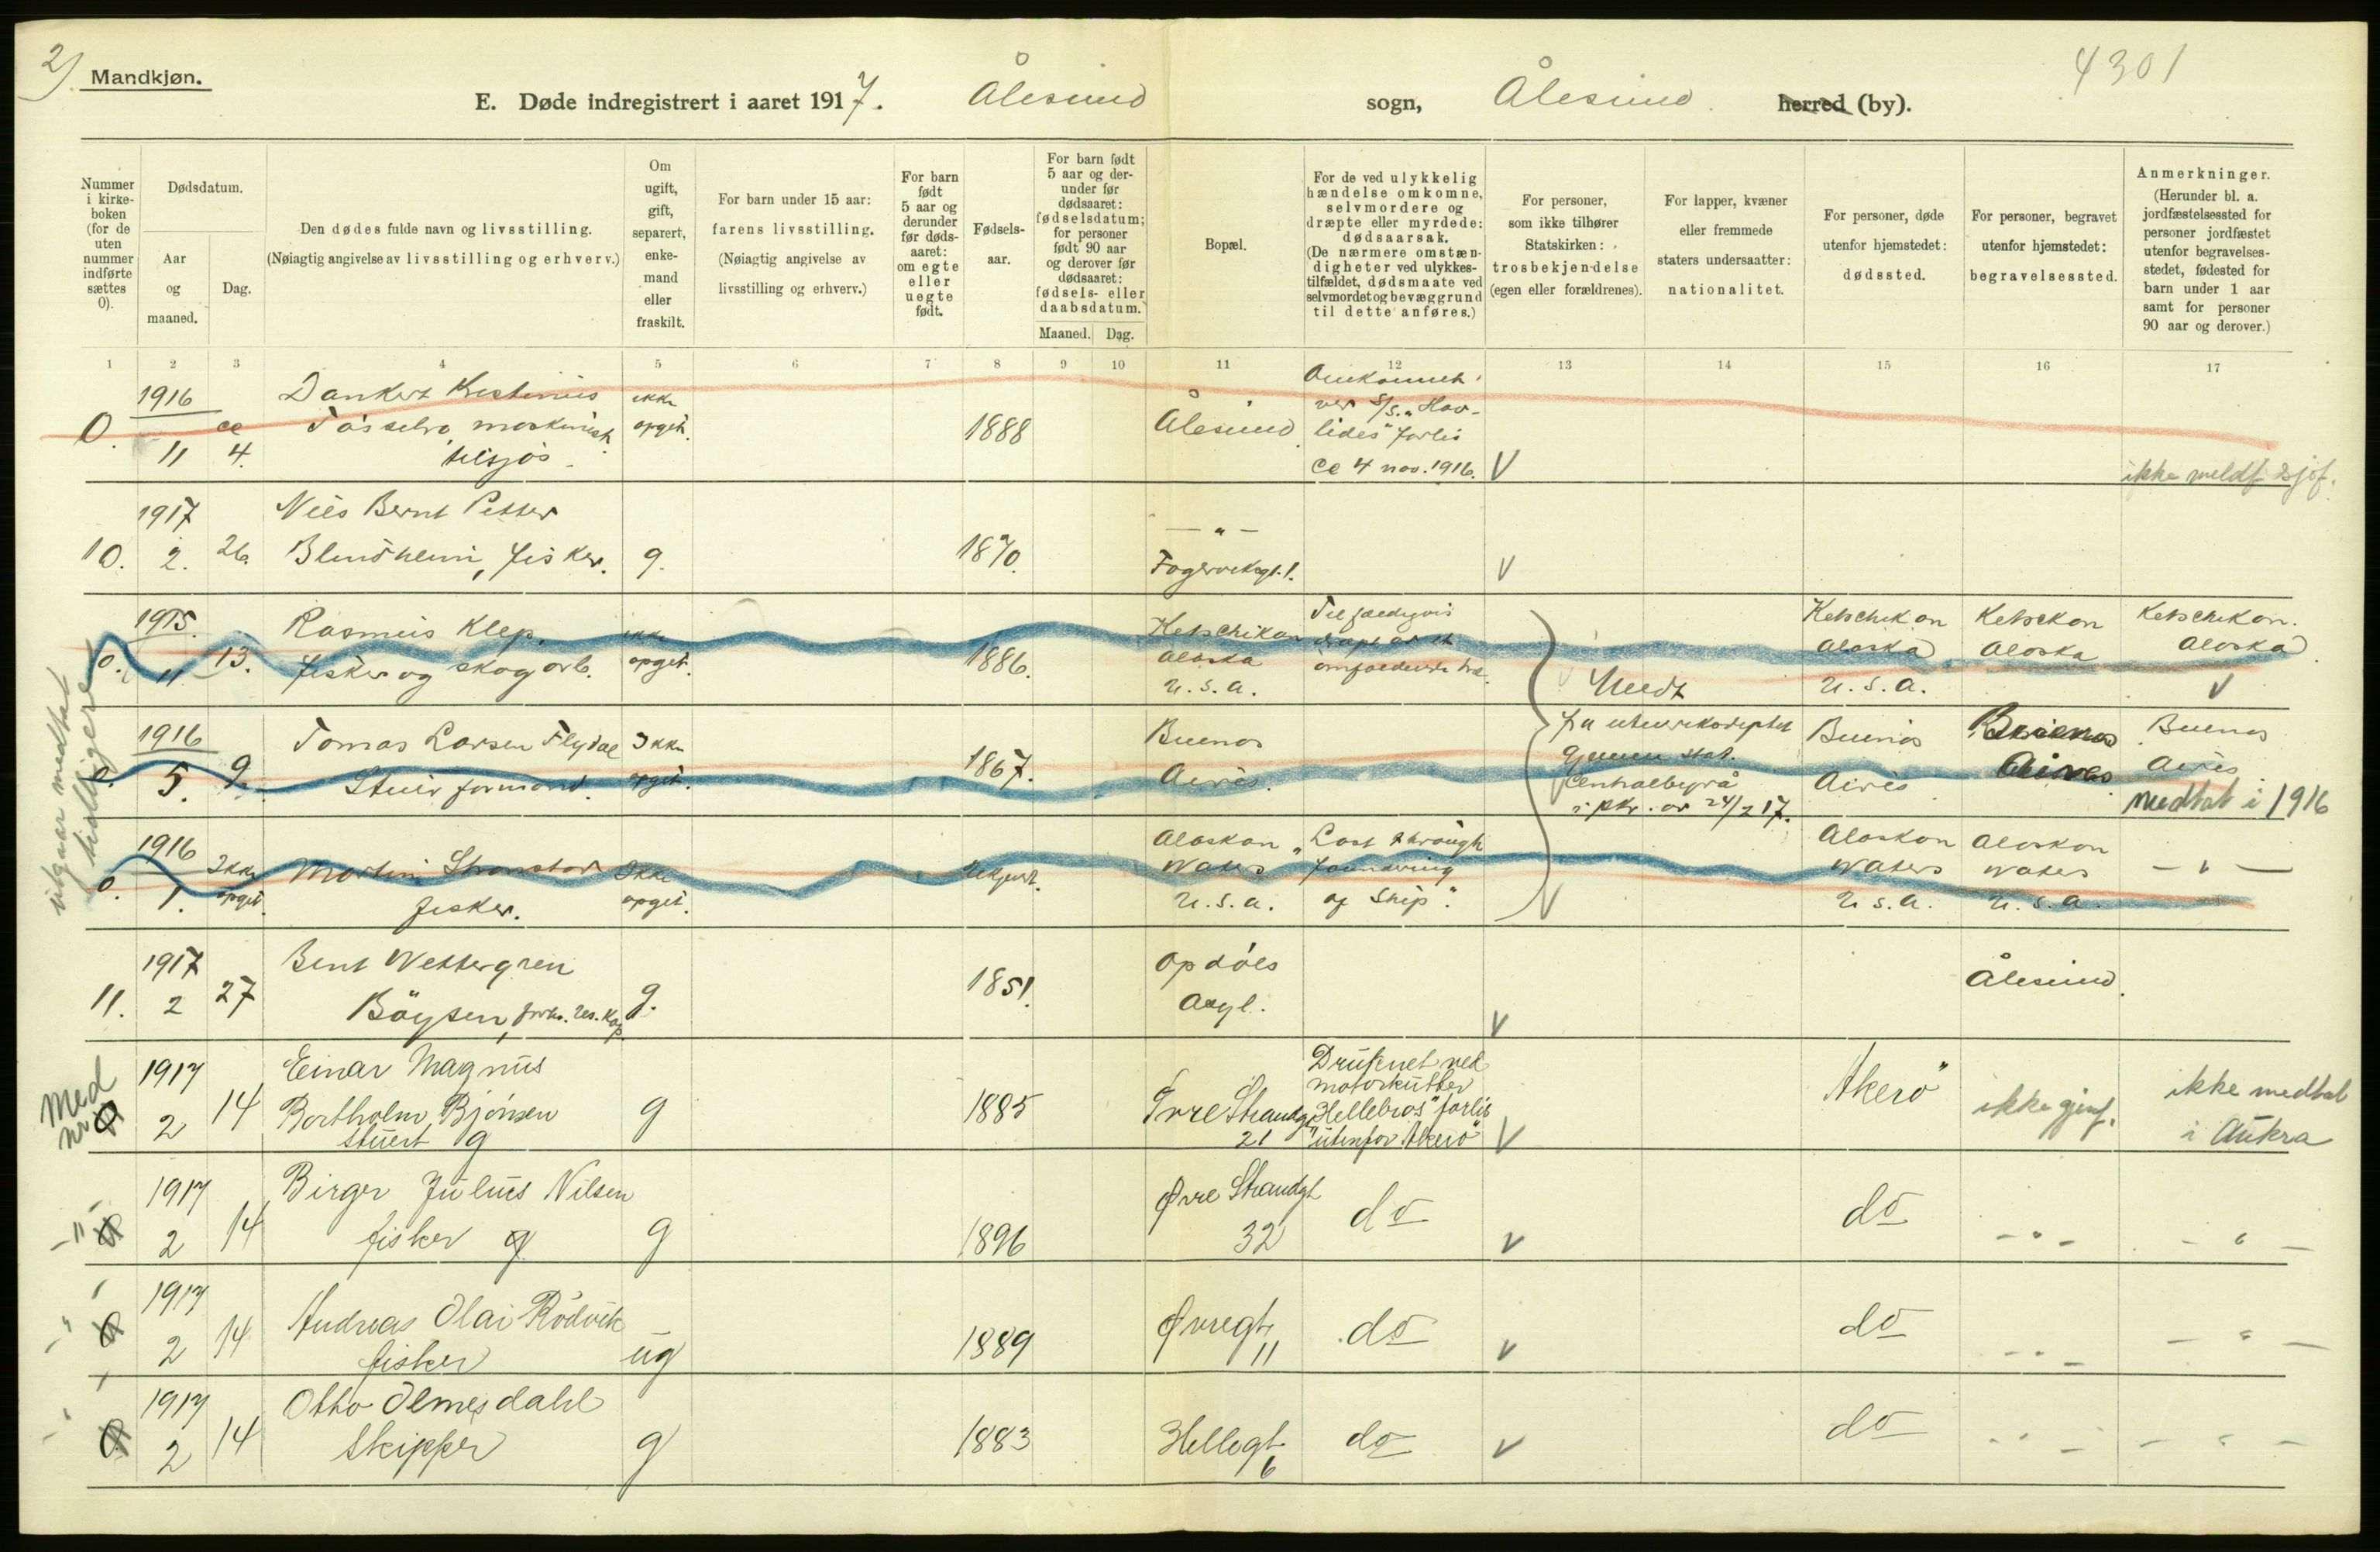 2)
Mandkjøn.
4301
E. Døde indregistrert i aaret 1917. Ålesund sogn, Ålesund herred (by).
Nummer i kirkeboken (for de uten nummer indførte sættes 0).
Dødsdatum.
Aar og maaned.
Dag.
Den dødes fulde navn og livsstilling.
(Nøiagtig angivelse av livsstilling og erhverv.)
Om ugift, gift, separert, enkemand eller fraskilt.
For barn under 15 aar:
farens livsstilling.
(Nøiagtig angivelse av livsstilling og erhverv.)
For barn født 5 aar og derunder før dødsaaret: om egte eller uegte født.
Fødselsaar.
For barn født 5 aar og derunder før dødsaaret: fødselsdatum; for personer født 90 aar og derover før dødsaaret: fødsels- eller daabsdatum.
Maaned. Dag.
Bopæl.
For de ved ulykkelig hændelse omkomne, selvmordere og dræpte eller myrdede: dødsaarsak.
(De nærmere omstændigheter ved ulykkestilfældet, dødsmaate ved selvmordet og bevæggrund til dette anføres.)
For personer, som ikke tilhører Statskirken: trosbekjendelse (egen eller forældrenes).
For lapper, kvæner eller fremmede staters undersaatter: nationalitet.
For personer, døde utenfor hjemstedet: dødssted.
For personer, begravet utenfor hjemstedet: begravelsessted.
Anmerkninger.
(Herunder bl. a. jordfæstelsessted for personer jordfæstet utenfor begravelsesstedet, fødested for barn under 1 aar samt for personer 90 aar og derover.)
1 2 3 4 5 6 7 8 9 10 11 12 13 14 15 16 17
0. 1916 11 ca 4. Dankert
maskinist
tilsjøs.
ikke opgit. 1888 Ålesund
Omkommet
ved S/S. "Hav-
lides" forlis
ca 4 nov. 1916. V
ikke meldt
10. 1917 2. 26. Nils Bernt Petter
Blindheim, fisker. g. 1870. — " —
V
0. 1915. 11 13. Rasmus Klep.
fisker og skogarb. ikke opgit. 1886.
Ketschikan
Alaska
U.S.A.
Tilfældigvis
dræpt av et
omfaldende træ.
Ketschikan
Alaska
U.S.A.
Ketsckan
Alaska
Ketschikan.
Alaska
V
0. 1916 5. 9. Tomas Larsen Flydal
formand. Ikke opgit. 1867.
Buenos
Aires.
Meldt
fra utenriksdeptet
gjennem stat.
Centralbyrå
i skr. av 24/2 17.
Buenos
Aires
Buenos
Aires
Buenos
Aires
Medtat i 1916
0. 1916 1. Ikke opgit. Martin
fisker. Ikke opgit. Ukjent.
Alaskan
Waters
U.S.A.
"Lost through
foundering
of Ship".
V
Alaskan
Waters
U.S.A.
Alaskan
Waters
U.S.A.
— " —
utgaar medtat
tidligere
11. 1917 2 27 Bent Wettergren
Böysen, forh. res. kap. g. 1851.
Opdöls
Asyl.
V
Ålesund.
Med
nr 0 1917 2 14 Einar Magnus
Bartholm Bjönsen
stuert g g 1885
Øvre Strandgt
21
Druknet ved
motorkutter
"Hellebros" forlis
utenfor Akerö
V
Akerö
ikke gjenf.
ikke medtat
i Aukra
— " 0 1917 2 14 Birger Julius Nilsen
fisker g g 1896
Øvre Strandgt
32
do
V
do
— " —
— " —
— " 0 1917 2 14 Andreas Olai Rödvik
fisker ug 1889
Øvregt
11
do
V
do
— " —
— " —
— " 0 1917 2 14 Otto Olmesdahl
Skipper g 1883
Hellegt
6
do
V
do
— " —
— " —